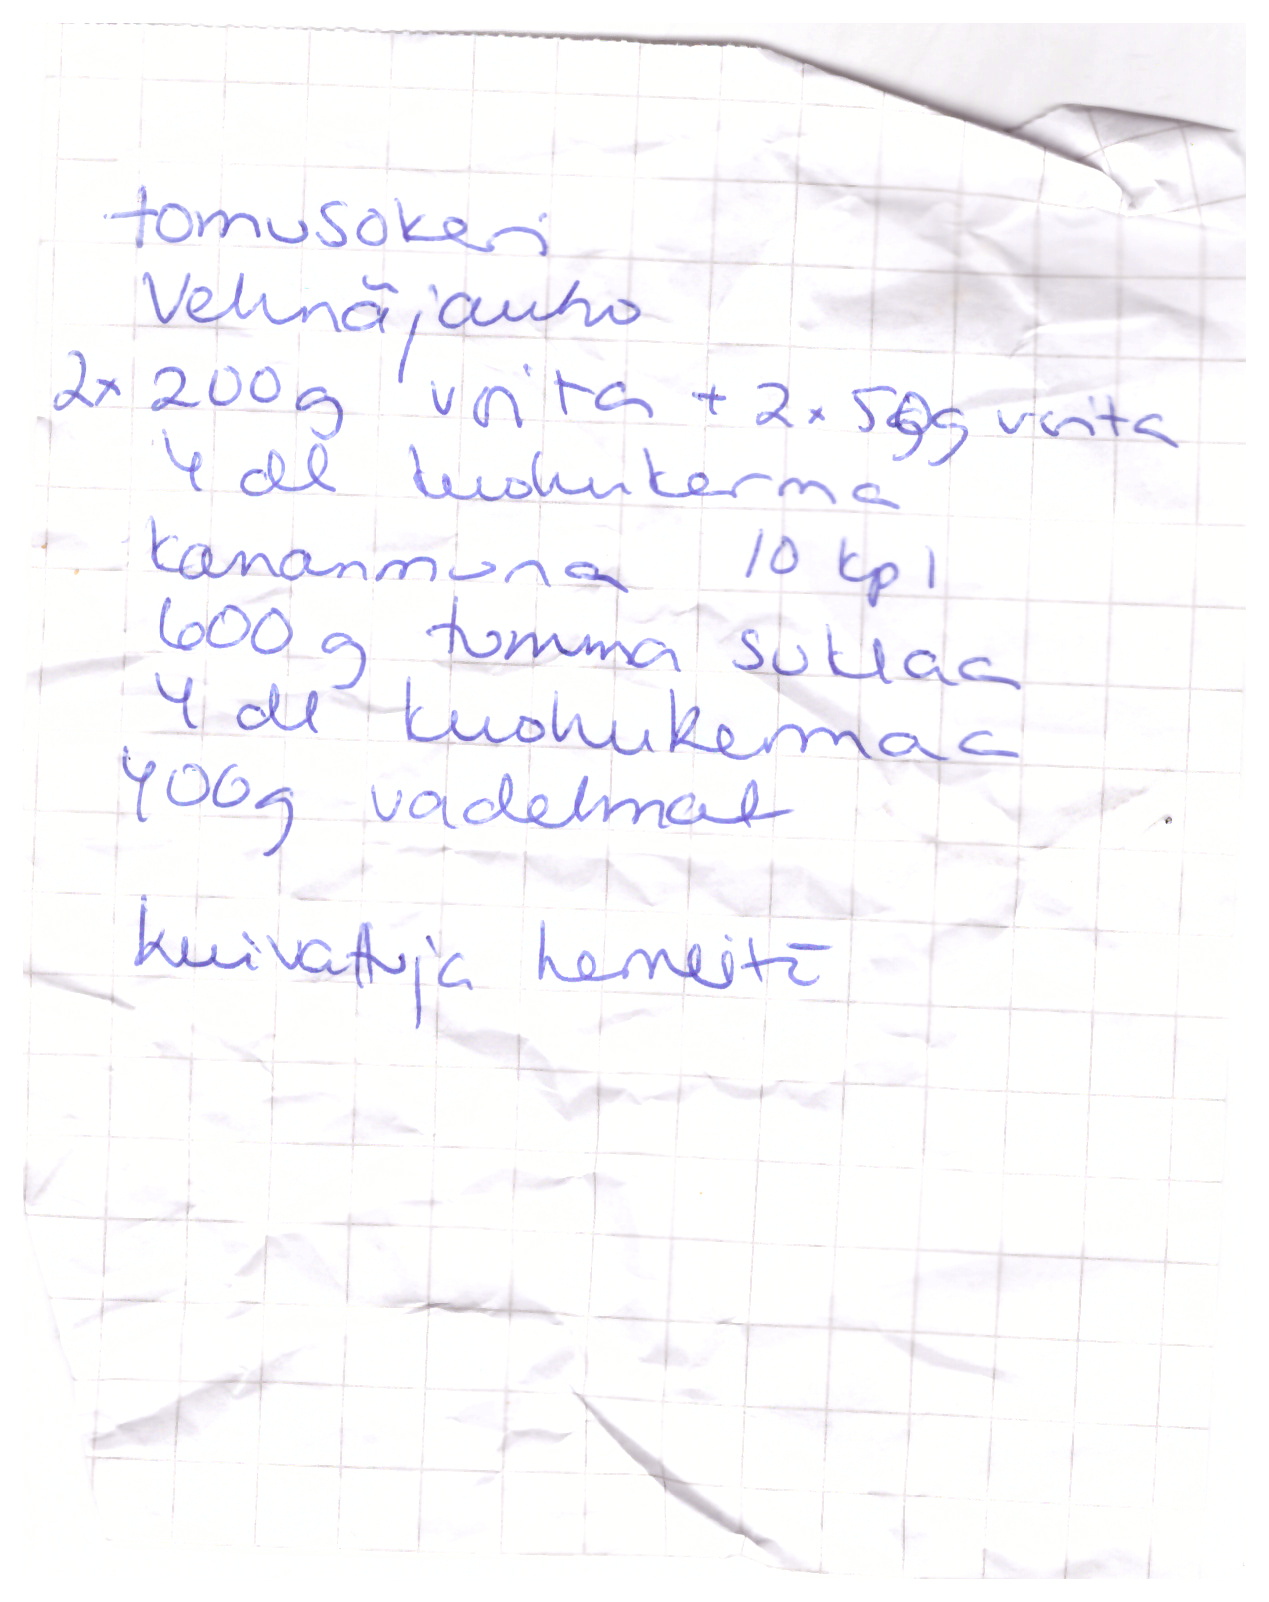 tomusokeri
Vehnäjauho
2x 200g voita + 2x 50g voita
4 dl kuohukerma
kananmuna 10 kpl
600 g tumma suklaa
4 dl kuohukermaa
400g vadelmat
kuivattuja herneitä